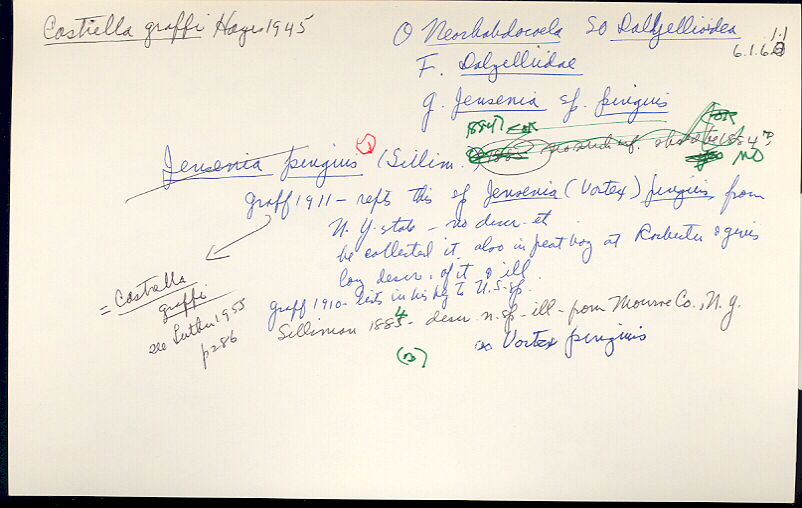 Castrella graffi Hayes 1945
O Neorhabdocoela SO Dalyellioidea
6.1.6.
F. Dalyelliidae
g. Jensenia sp. pinguis
1884
Jensenia pinguis (Sillim.
Graff 1911 - repts this sp Jensenia (Vortex) pinguis from
N.Y. state - no descr. et
he collected it also in peat bog at Rochester & gives
long descr. of it & ill.
Graff 1910 - lists in his Key to U.S. sp.
Silliman 1884 - descr. n.sp - ill - from Monroe Co., N.Y.
as Vortex pinguis
= Castrella
graffi
see Luther 1955
p 286